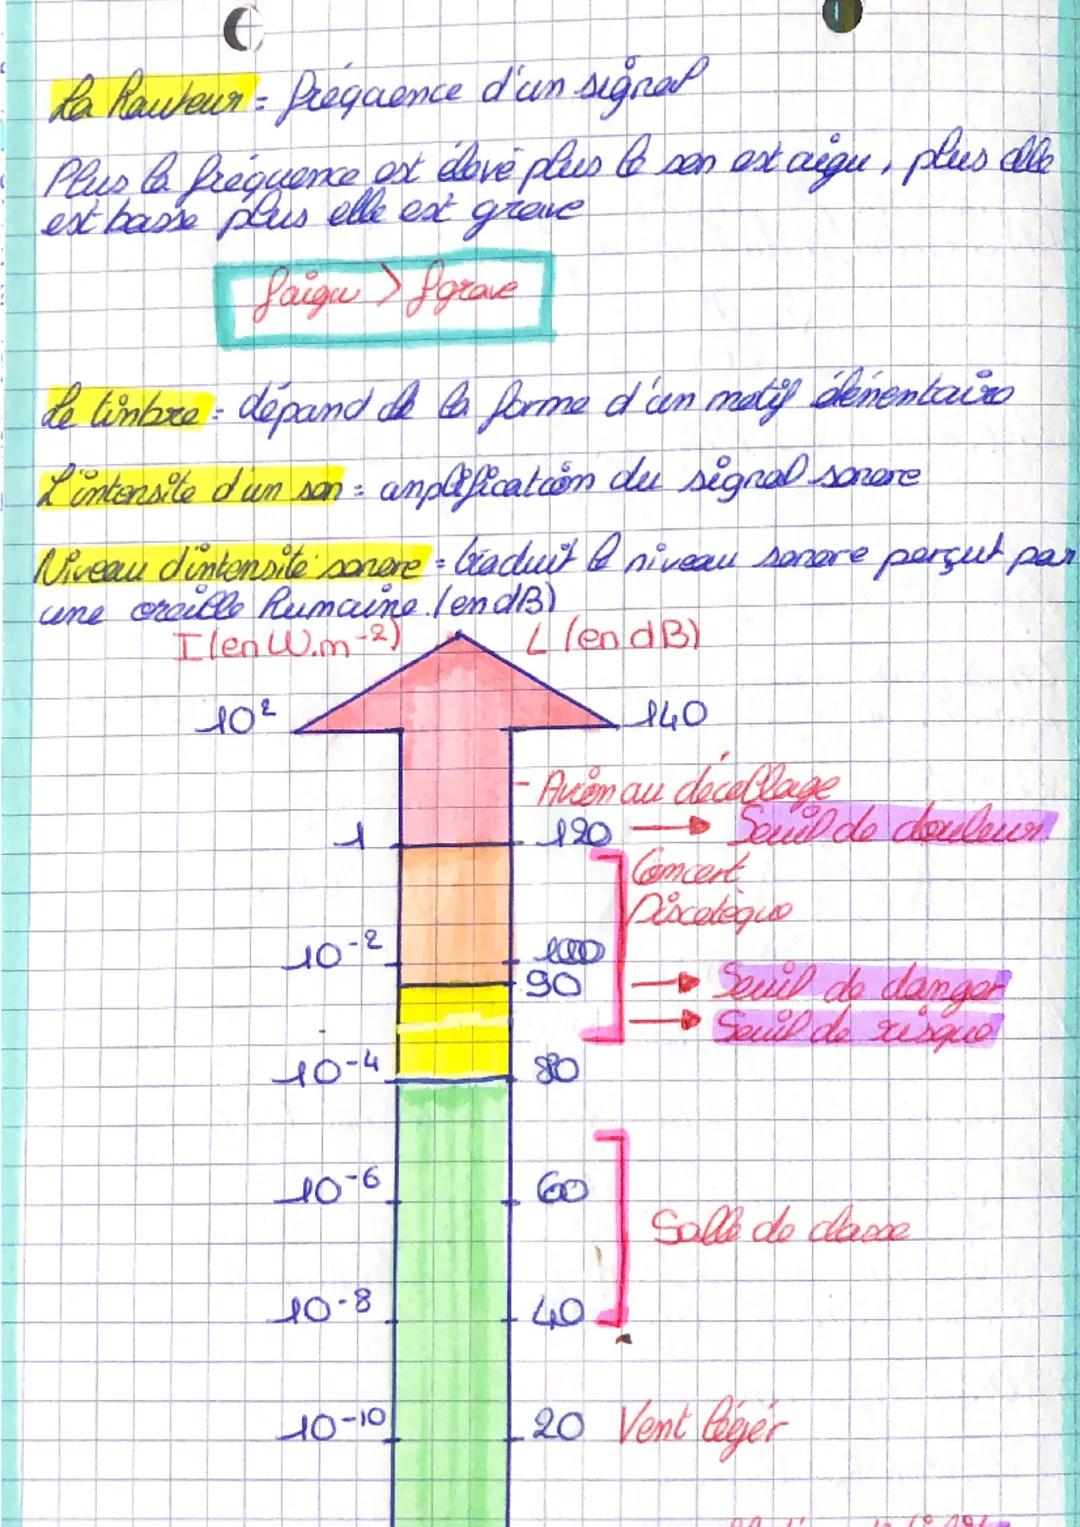 La hauteur = fréquence d'un signal
Plus la fréquence est élevé plus le son est aigu, plus elle
est basse plus elle est grave
faigu > fgrave
Le timbre = dépand de la forme d'un motif élémentaire
L'intensité d'un son = amplification du signal sonore
Niveau d'intensité sonore = traduit le niveau sonore perçut par
une oreille humaine (en dB)
I (en W.m-²) L (en dB)
10² 140
- Avion au décollage
1 120 → Seuil de douleur
Concert
Discotèque
10-² 100
90 → Seuil de danger
→ Seuil de risque
10-4 80
10-6 60
Salle de classe
10-8 40
10-10 20 Vent léger